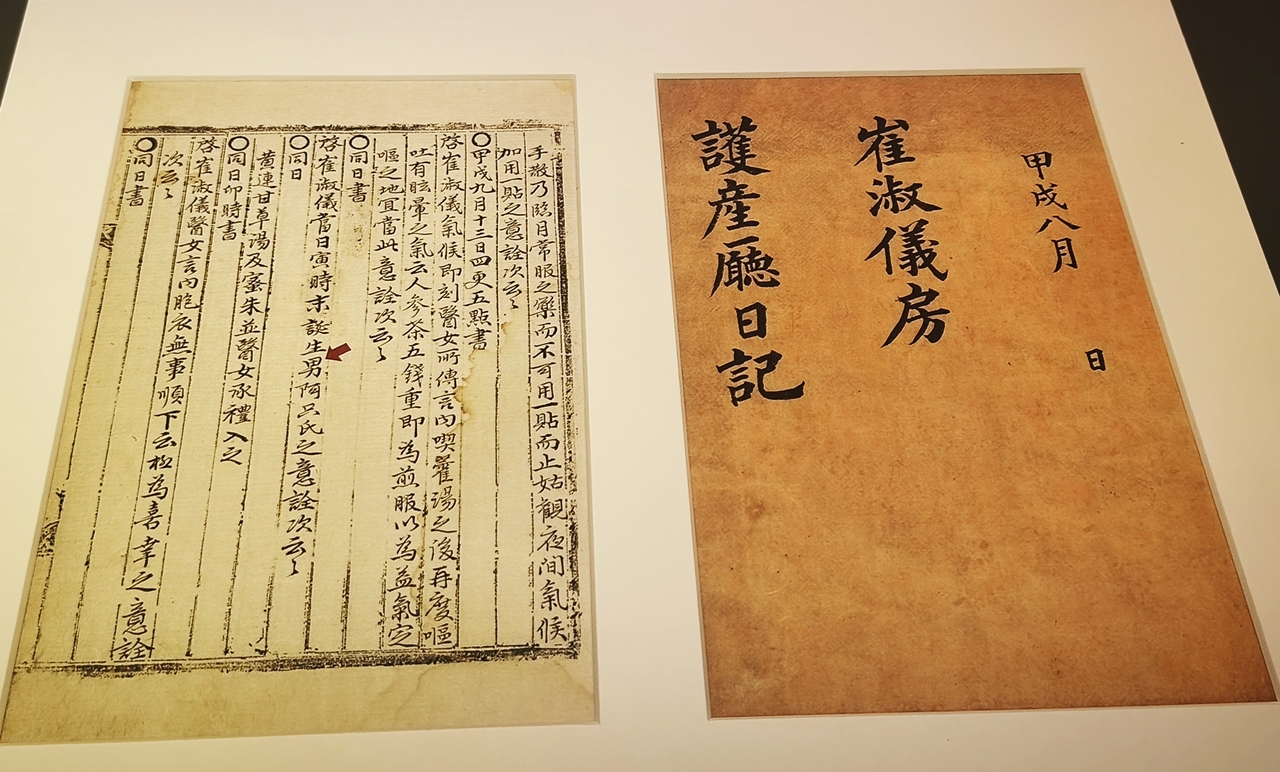 甲戌八月 日
崔淑儀房
護産廳日記
手散乃臨月常服之藥而不可用一貼而止姑觀夜間氣候
加用一貼之意詮次云〻
○甲戌九月十三日四更五點書
啓崔淑儀氣候即刻醫女所傳言內喫藿湯之後再度嘔
吐有眩暈之氣云人參茶五錢重即為煎服以為益氣定
嘔之地宜當此意詮次云〻
○同日書
啓崔淑儀當日寅時末誕生男阿只氏之意詮次云〻
○同日
黃連甘草湯及蜜朱並醫女承禮入之
○同日卯時書
啓崔淑儀醫女言內胞衣無事順下云極為喜幸之意詮
次云〻
○同日書